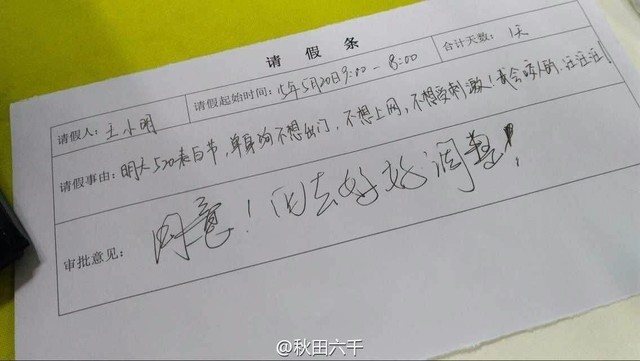 请 假 条
请假人: 王小明 请假起始时间: 15年5月20日9:00-8:00 合计天数: 1天
请假事由: 明天520表白节,单身狗不想出门,不想上网,不想受刺激!我会咬人的.汪汪汪!
审批意见: 同意!回去好好调整!
@秋田六千